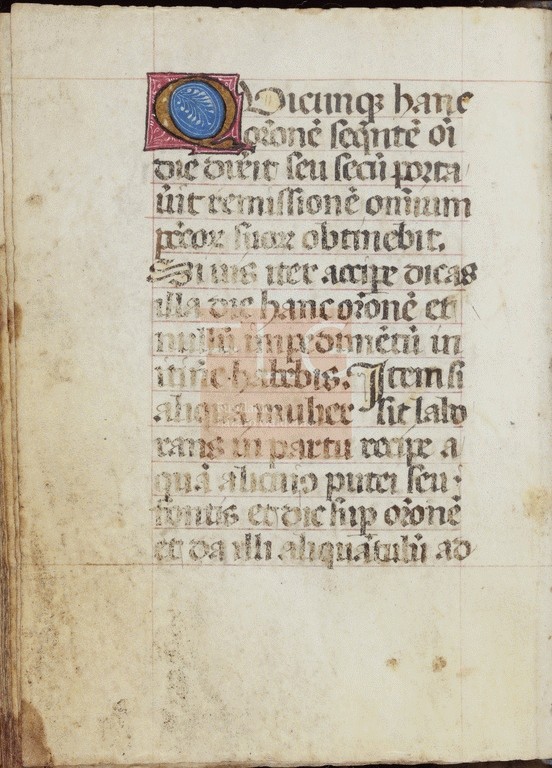 Quicunqꝫ hanc
or̃onẽ seq̃ntẽ oĩ
die dixẽit seu secũ porta
ũit remissionẽ omnium
pc̃cor suor obtinebit.
Si uis iter accipe dicas
illa die hanc or̃onẽ et
nullũ impedimẽtũ in
itiñe habebis. Item si
aliqua mulier sit labo
rans in partu recipe a
quã alicuiꝰ putei seu
fontis et dic sup̃ or̃onẽ
et da illi aliquãtulũ ad